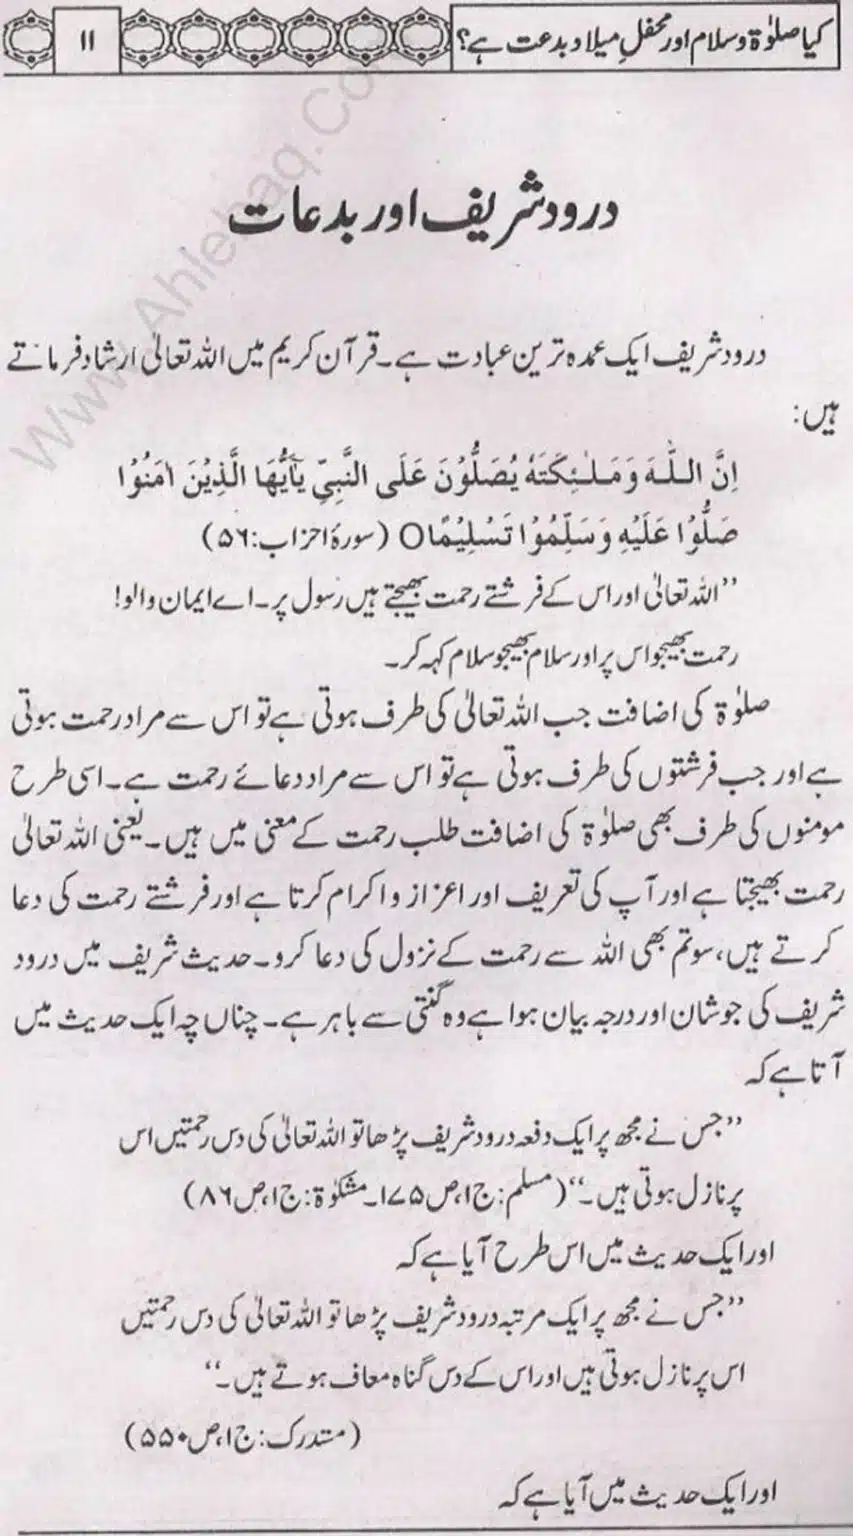 کیا صلوٰۃ و سلام اور محفلِ میلاد بدعت ہے؟
۱۱
درود شریف اور بدعات
درود شریف ایک عمدہ ترین عبادت ہے۔ قرآن کریم میں اللہ تعالیٰ ارشاد فرماتے
ہیں:
اِنَّ اللّٰہَ وَمَلٰٓئِکَتَہٗ یُصَلُّوْنَ عَلَی النَّبِیِّ یٰٓاَیُّھَا الَّذِیْنَ اٰمَنُوْا
صَلُّوْا عَلَیْہِ وَسَلِّمُوْا تَسْلِیْمًا○ (سورۂ احزاب:۵۶)
”اللہ تعالیٰ اور اس کے فرشتے رحمت بھیجتے ہیں رسول پر۔ اے ایمان والو!
رحمت بھیجو اس پر اور سلام بھیجو سلام کہہ کر۔
صلوٰۃ کی اضافت جب اللہ تعالیٰ کی طرف ہوتی ہے تو اس سے مراد رحمت ہوتی
ہے اور جب فرشتوں کی طرف ہوتی ہے تو اس سے مراد دعائے رحمت ہے۔ اسی طرح
مومنوں کی طرف بھی صلوٰۃ کی اضافت طلب رحمت کے معنی میں ہیں۔ یعنی اللہ تعالیٰ
رحمت بھیجتا ہے اور آپ کی تعریف اور اعزاز و اکرام کرتا ہے اور فرشتے رحمت کی دعا
کرتے ہیں، سو تم بھی اللہ سے رحمت کے نزول کی دعا کرو۔ حدیث شریف میں درود
شریف کی جو شان اور درجہ بیان ہوا ہے وہ گنتی سے باہر ہے۔ چناں چہ ایک حدیث میں
آتا ہے کہ
”جس نے مجھ پر ایک دفعہ درود شریف پڑھا تو اللہ تعالیٰ کی دس رحمتیں اس
پر نازل ہوتی ہیں۔“ (مسلم: ج۱، ص۱۷۵۔ مشکوٰۃ: ج۱، ص۸۶)
اور ایک حدیث میں اس طرح آیا ہے کہ
”جس نے مجھ پر ایک مرتبہ درود شریف پڑھا تو اللہ تعالیٰ کی دس رحمتیں
اس پر نازل ہوتی ہیں اور اس کے دس گناہ معاف ہوتے ہیں۔“
(مستدرک: ج۱، ص۵۵۰)
اور ایک حدیث میں آیا ہے کہ
Www.Ahlehaq.Co